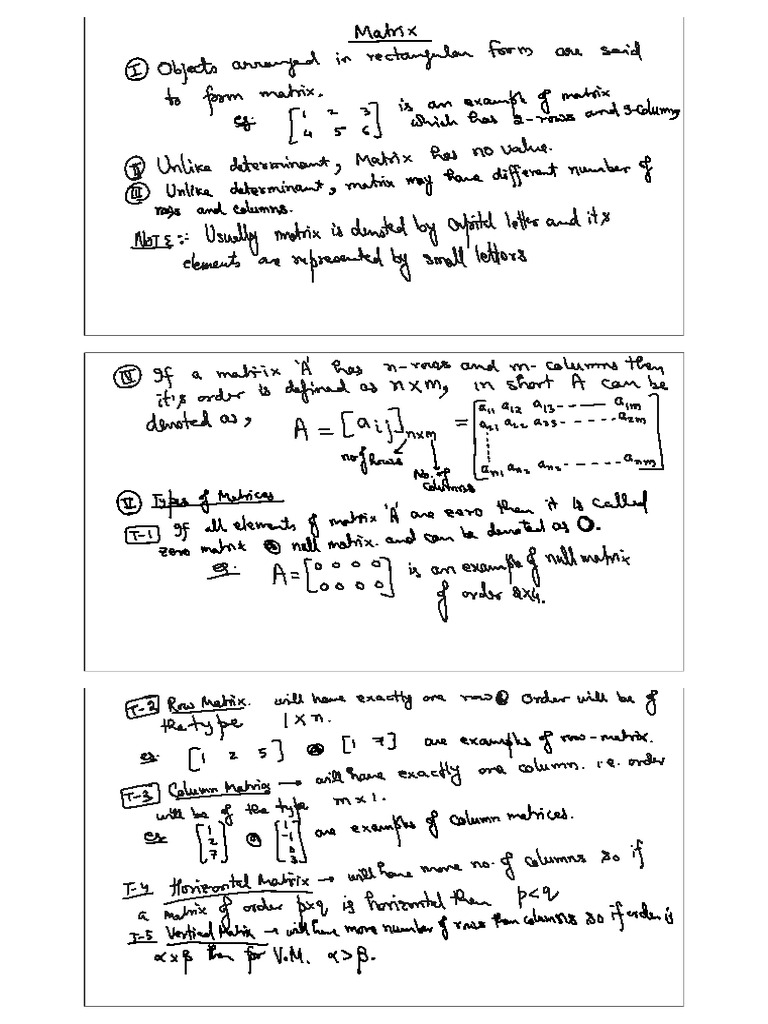 Matrix
(I) Objects arranged in rectangular form are said
to form matrix.
eg: [1 2 3
4 5 6] is an example of matrix
which has 2-rows and 3-columns
(II) Unlike determinant, Matrix has no value.
(III) Unlike determinant, matrix may have different number of
rows and columns.
NOTE:- Usually matrix is denoted by capital letter and it's
elements are represented by small letters
(IV) If a matrix 'A' has n-rows and m-columns then
it's order is defined as n×m, in short A can be
denoted as, A = [aij]n×m = [a11 a12 a13 ------ a1m
a21 a22 a23 ------ a2m
an1 an2 an3 ------ anm]
no of rows
No. of
columns
(V) Types of Matrices
T-1 If all elements of matrix 'A' are zero then it is called
zero matrix or null matrix. and can be denoted as O.
eg. A = [0 0 0 0
0 0 0 0] is an example of null matrix
of order 2×4.
T-2 Row Matrix. will have exactly one row order will be of
the type 1×n.
eg. [1 2 5] or [1 7] are examples of row-matrix.
T-3 Column Matrix → will have exactly one column. i.e. order
will be of the type m×1.
eg [1
2
7] or [1
-1
0
3] are examples of column matrices.
T-4 Horizontal Matrix → will have more no. of columns so if
a matrix of order p×q is horizontal then p<q
T-5 Vertical Matrix → will have more number of rows than columns so if order is
α×β then for V.M. α>β.